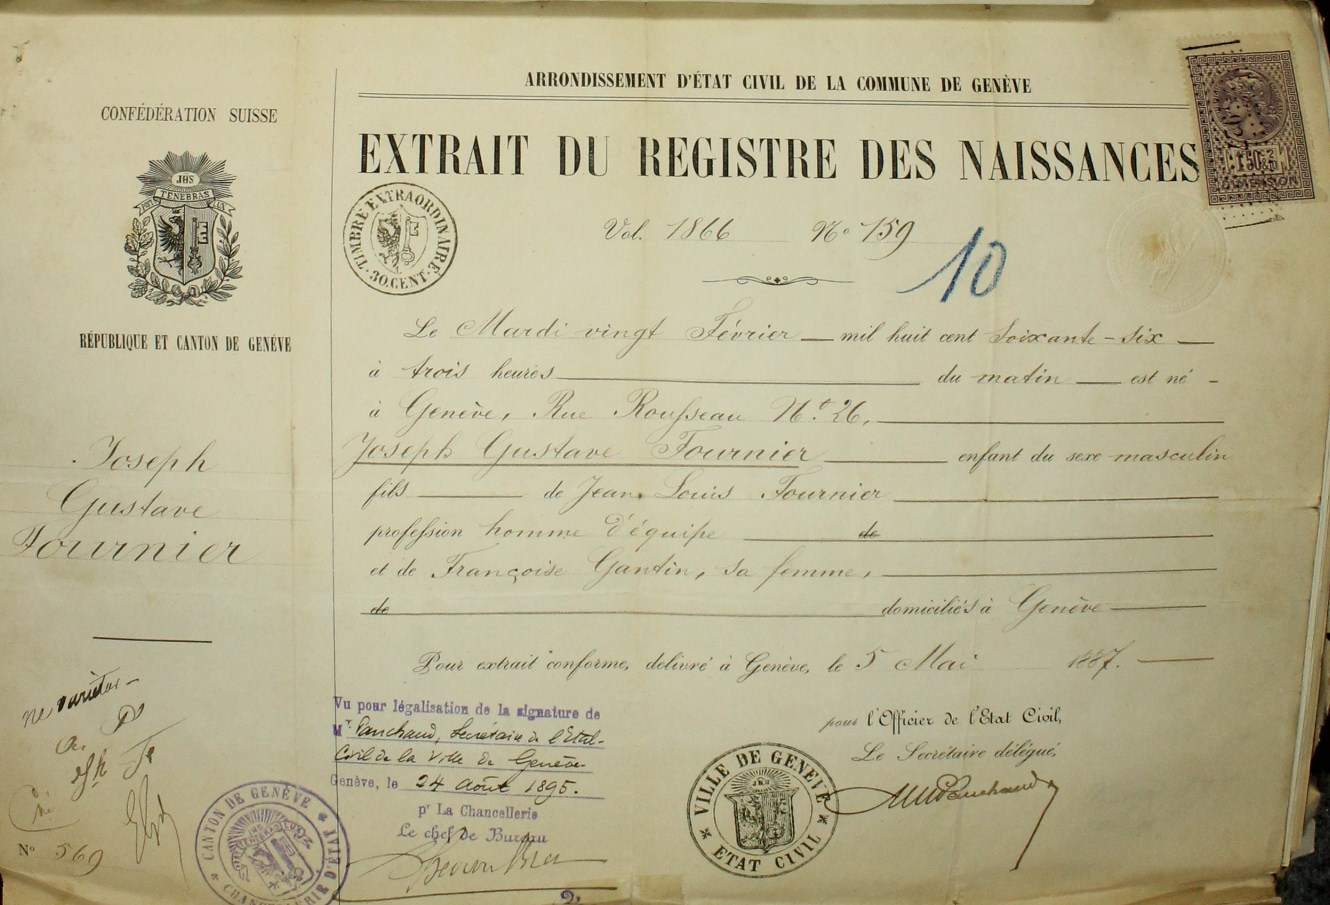 ARRONDISSEMENT D'ÉTAT CIVIL DE LA COMMUNE DE GENÈVE
EXTRAIT DU REGISTRE DES NAISSANCES
Vol. 1866 No 159
10
TIMBRE EXTRAORDINAIRE
30. CENT.
CONFÉDÉRATION SUISSE
JHS
TENEBRAS
RÉPUBLIQUE ET CANTON DE GENÈVE
Joseph
Gustave
Fournier
Le Mardi vingt Février mil huit cent Soixante-Six
à trois heures du matin est né
à Genève, Rue Rousseau No. 26,
Joseph Gustave Fournier enfant du sexe masculin
fils de Jean Louis Fournier
profession homme d'équipe de
et de Françoise Gantin, sa femme,
de domiciliés à Genève
Pour extrait conforme, délivré à Genève, le 5 Mai 1887.
pour l'Officier de l'Etat Civil,
Le Secrétaire délégué
VILLE DE GENÈVE
ETAT CIVIL
Vu pour légalisation de la signature de
Mr Panchaud, Secrétaire de l'Etat-
Civil de la Ville de Genève
Genève, le 24 août 1895.
pr La Chancellerie
Le chef de Bureau
CANTON DE GENÈVE
ne varietur
No 569